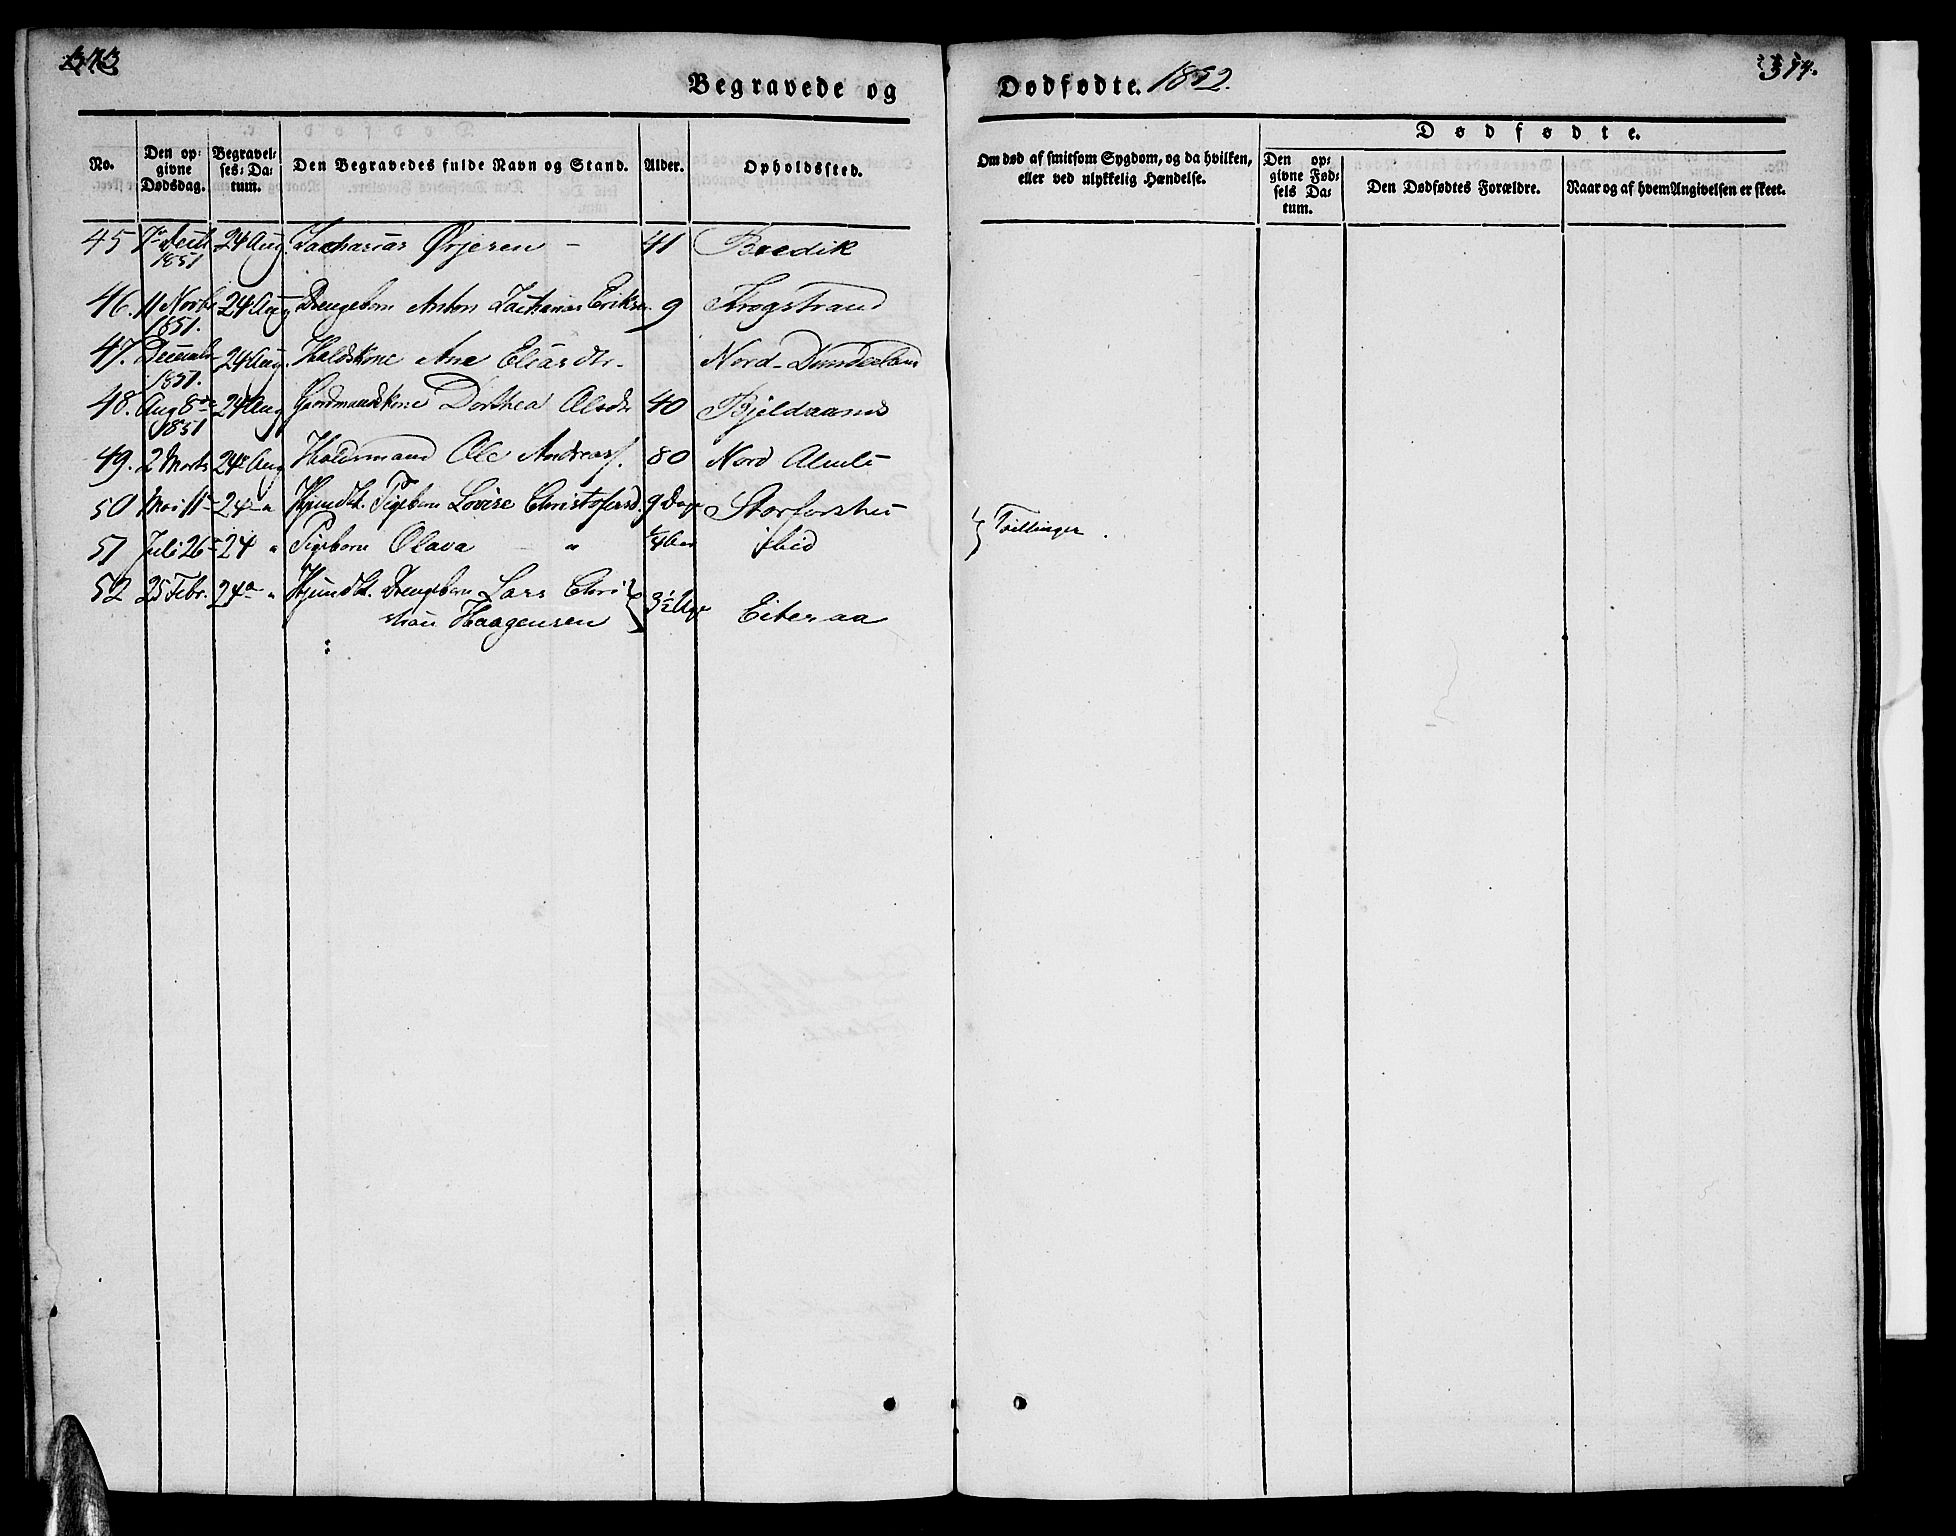 373
374.
Begravede og Dødfødte. 1852.
No.
Den opgivne Dødsdag.
Begravelses-Datum.
Den Begravedes fulde Navn og Stand.
Alder.
Opholdssted.
Om død af smitsom Sygdom, og da hvilken, eller ved ulykkelig Hændelse.
Dødfødte.
Den opgivne Fødsels Datum.
Den Dødfødtes Forældre.
Naar og af hvem Angivelsen er skeet.
45 1851 24 Aug. Zacharias Ørjesen - 41 Bredik
46. 11 Novb 1851. 24 Aug Drengebarn Anton Zacharias Eriksen 9 Frogstrand
47. Decemb 1851. 24 Aug. Huldskone Ane Eliasdtr. Nord-Dunderland
48. Aug 8de 1851 24 Aug Gaardmandskone Dorthea Olsdr 40 Bjeldaanes
49. 2 Marts 24de Aug Huldsmand Ole Andreass. 80 Nord
50 Mai 11te 24 " Hjemdbt. Pigebarn Lovise Christofersd. 9 Dage Storforshei
51 Juli 26 24 " Pigebarn Olava " 1/4 Aar ibid
} Tvillinger.
52 25 Febr. 24 " Hjemdbt. Drengebarn Lars Christian Haagensen } 3½ Uge Eiteraa